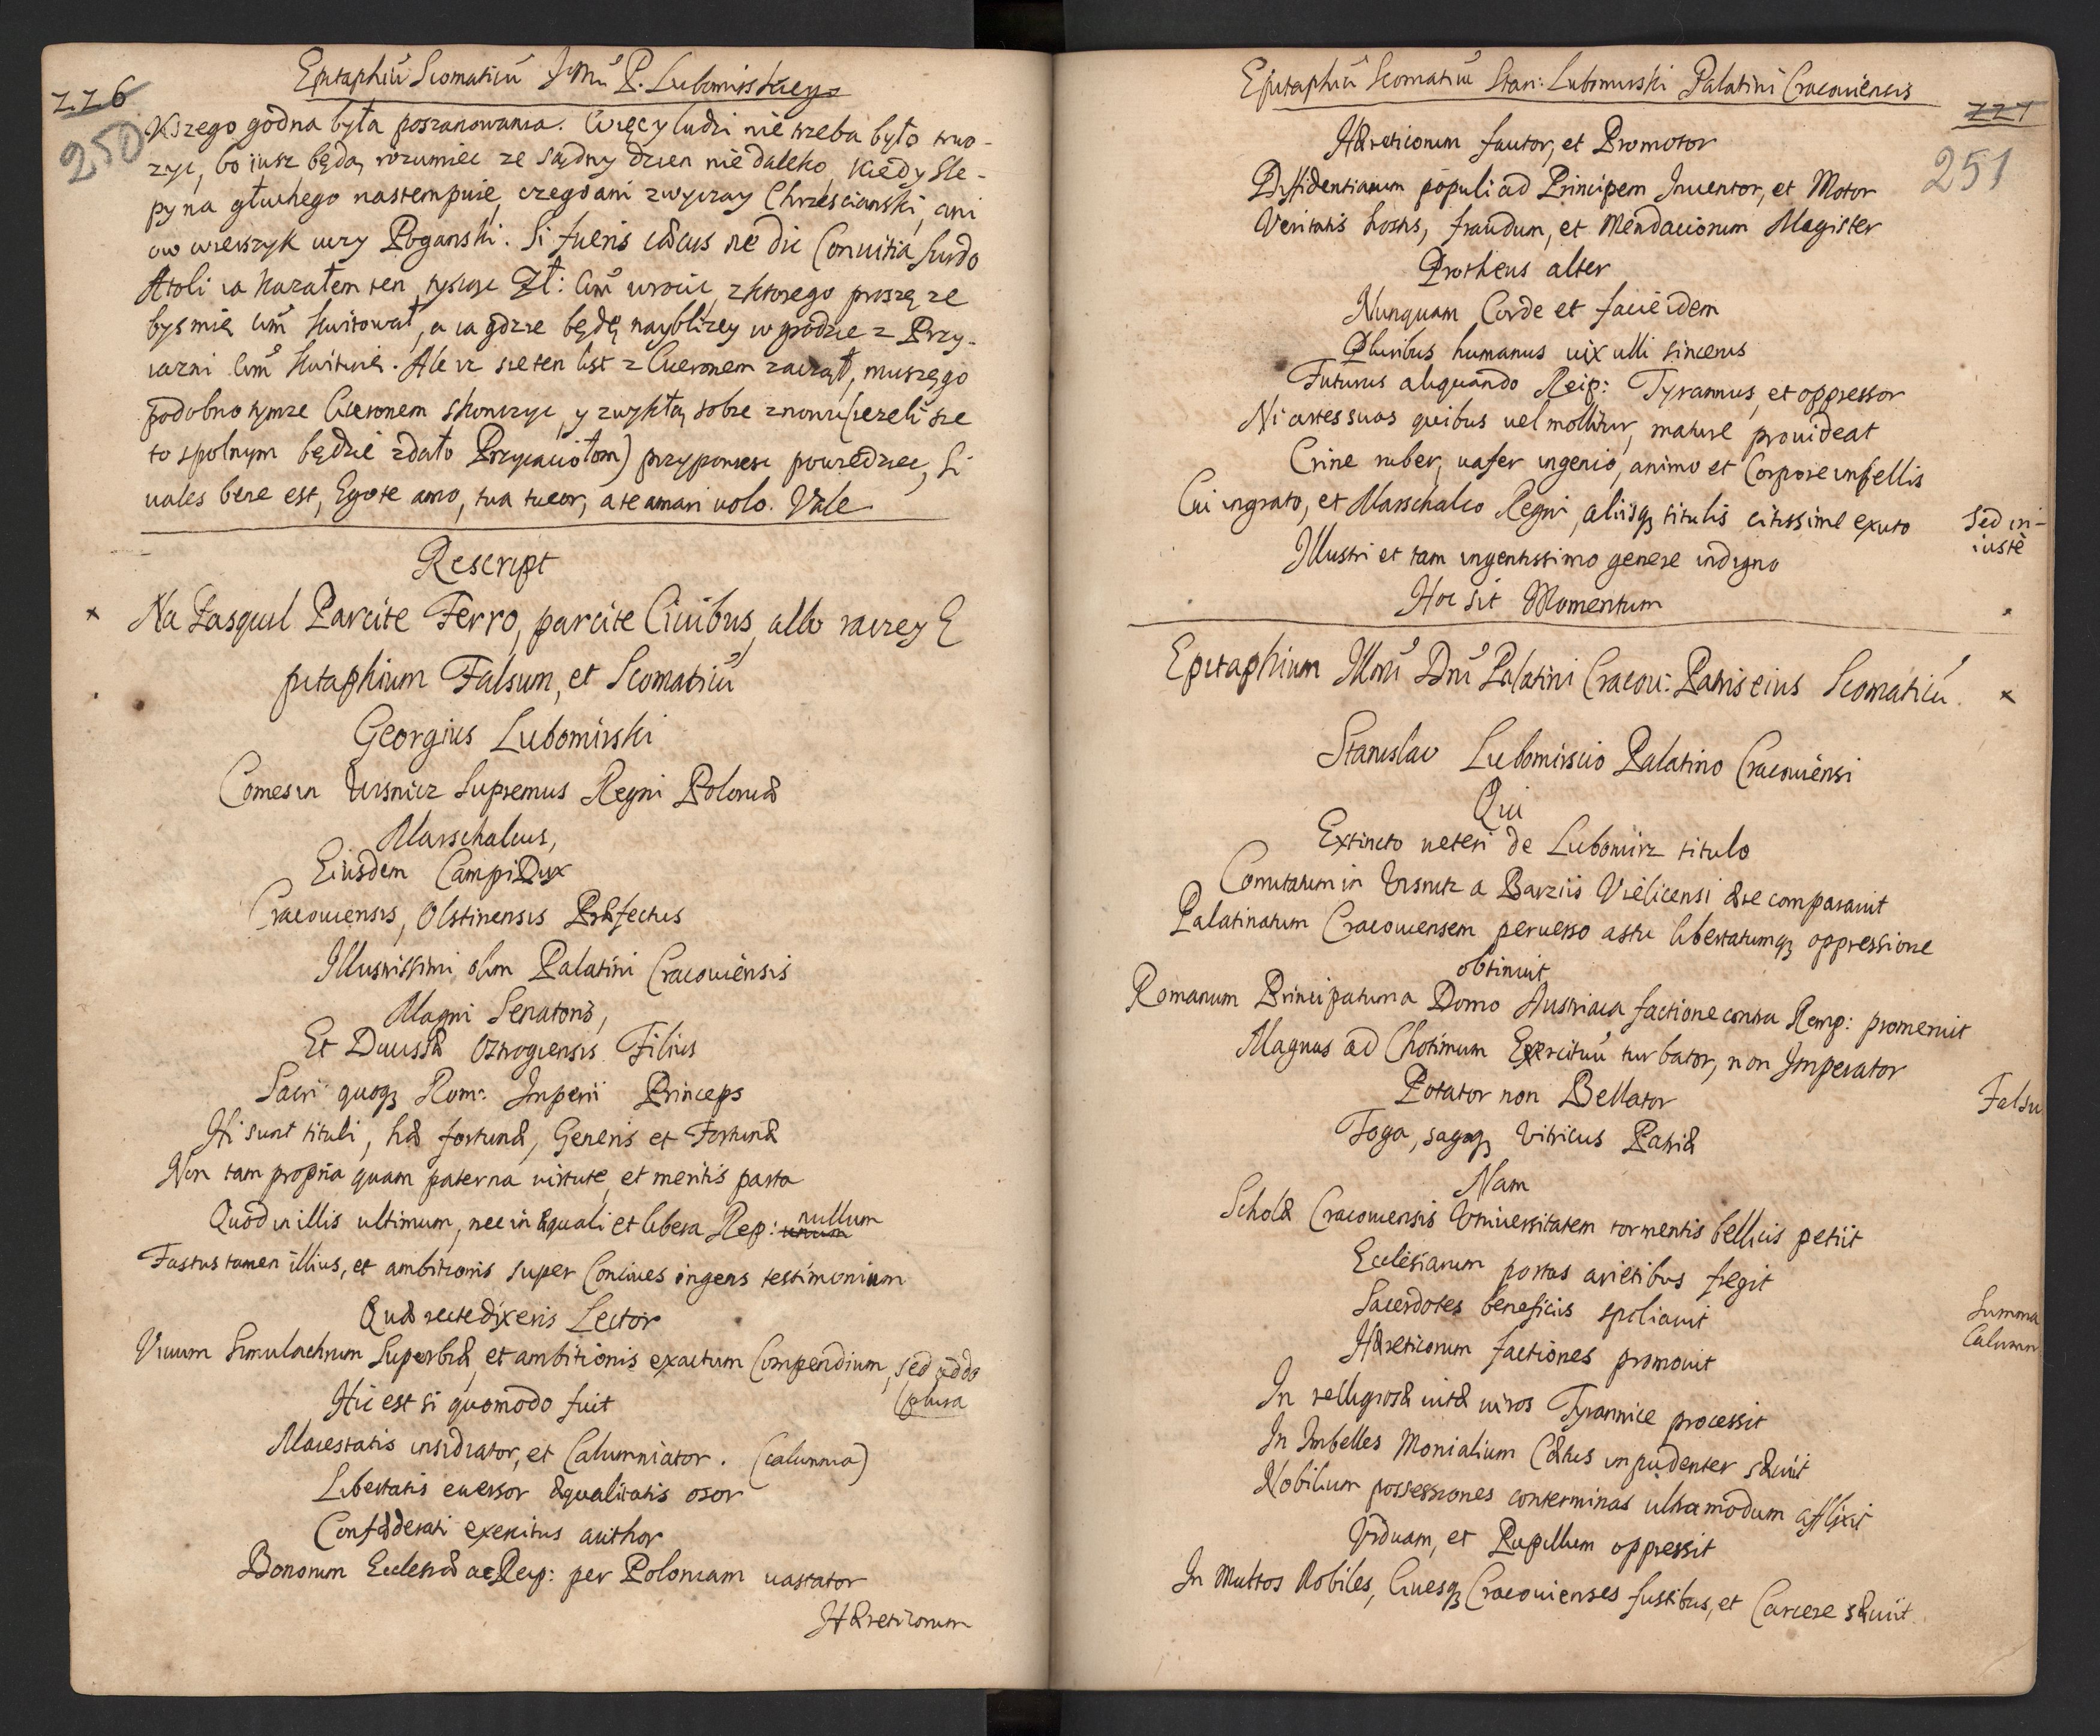 Epitaphiũ Scomaticũ JMũ P. Lubomirskiego
226
250
Kszego godna była poszanowania. Więcy ludzi nie trzeba było trwo-
zyc, bo iusz będą rozumiec ze sądny dzien nie daleko, kiedy Sle-
py na głuchego nastempuie, czego ani zwyczay Chrzescianski, ani
ow wierszyk uczy Poganski. Si fueris cæcus ne dic Conuitia Surdo
Atoli ia kazałem ten tysiąc Zł: wrocic, z ktorego proszę ze
bys mię kwitował, a ia gdzie będę nayblizey w grodzie z Przy-
iazni kwituię. Ale iz sie ten list z Ciceronem zaczął, muszę go
podobno tymze Ciceronem skonczyc, y zwykłą sobie znowu (iezeli sie
to spolnym będzie zdało Przyiaciołom) przypomiec powiedziec, Si
uales bene est, Ego te amo, tua tueor, a te amari uolo. Vale
Rescript
× Na Pasquil Parcite Ferro, parcite Ciuibus, albo raczey E
pitaphium Falsum, et Scomaticũ
Georgius Lubomirski
Comes in Wisnicz Supremus Regni Poloniæ
Marschalcus,
Eiusdem Campi Dux
Cracouiensis, Olstinensis Præfectus
Illustrissimi olim Palatini Cracouiensis
Magni Senatoris,
Et Ducissæ Ostrogiensis Filius
Sacri quoqȝ Rom: Inperii Princeps
Hi sunt tituli, hæ fortunæ, Generis et Fortunæ
Non tam propria quam paterna uirtute, et meritis parta
Quod in illis ultimum, nec in æquali et libera Rep: unum nullum
Fastus tamen illius, et ambitionis super Conciues ingens testimonium
Quæ recte dixeris Lector
Viuum Simulachrum Superbiæ, et ambitionis exactum Compendium, sed addo
(plura
Hic est si quomodo fuit
Maiestatis insidiator, et Calumniator. (calumnia)
Libertatis euersor æqualitatis osor
Confæderati exercitus author
Bonorum Ecclesiæ ac Reip: per Poloniam uastator
Hæreticorum
Epitaphiũ Scomaticũ Stan: Lubomirski Palatini Cracouiensis
227
251
Hæreticorum fautor, et Promotor
Diffidentiarum populi ad Principem Inuentor, et Motor
Veritatis hostis, fraudum, et Mendaciorum Magister
Protheus alter
Nunquam Corde et facie idem
Pluribus humanus uix ulli sincerus
Futurus aliquando Reip: Tyrannus, et oppressor
Ni artes suas quibus uel mollitur, mature prouideat
Crine ruber, uafer ingenio, animo et Corpore inbellis
Cui ingrato, et Marschalco Regni, aliisqȝ titulis citissime exuto
Sed in-
iuste
Illustri et tam ingentissimo genere indigno
Hoc sit Momentum
Epitaphium Illmi Dni Palatini Cracou: Patris eius Scomaticũ. ×
Stanislao Lubomirscio Palatino Cracouiensi
Qui
Extincto ueteri de Lubomirz titulo
Comitatum in Wisnicz a Barziis Vielicensi ære comparauit
Palatinatum Cracouiensem peruerso astu libertatumqȝ oppressione
obtinuit
Romanum Principatum a Domo Austriaca factione contra Remp: promeruit
Magnus ad Chotimum Exercituũ turbator, non Imperator
Potator non Bellator
Falsu
Toga, sagoqȝ Vitricus Patriæ
Nam
Scholæ Cracouiensis Vniuersitatem tormentis bellicis petiit
Ecclesiarum portas arietibus fregit
Sacerdotes beneficiis spoliauit
Summa
Calumn
Hæreticorum factiones promouit
In relligiosæ uitæ uiros Tyrannice processit
In Imbelles Monialium Cætus inpudenter sæuiit
Nobilium possessiones conterminas ultra modum afflixit
Viduam, et Pupillum oppressit
In Multos Nobiles, Ciuesqȝ Cracouienses fustibus, et Carcere sæuiit.